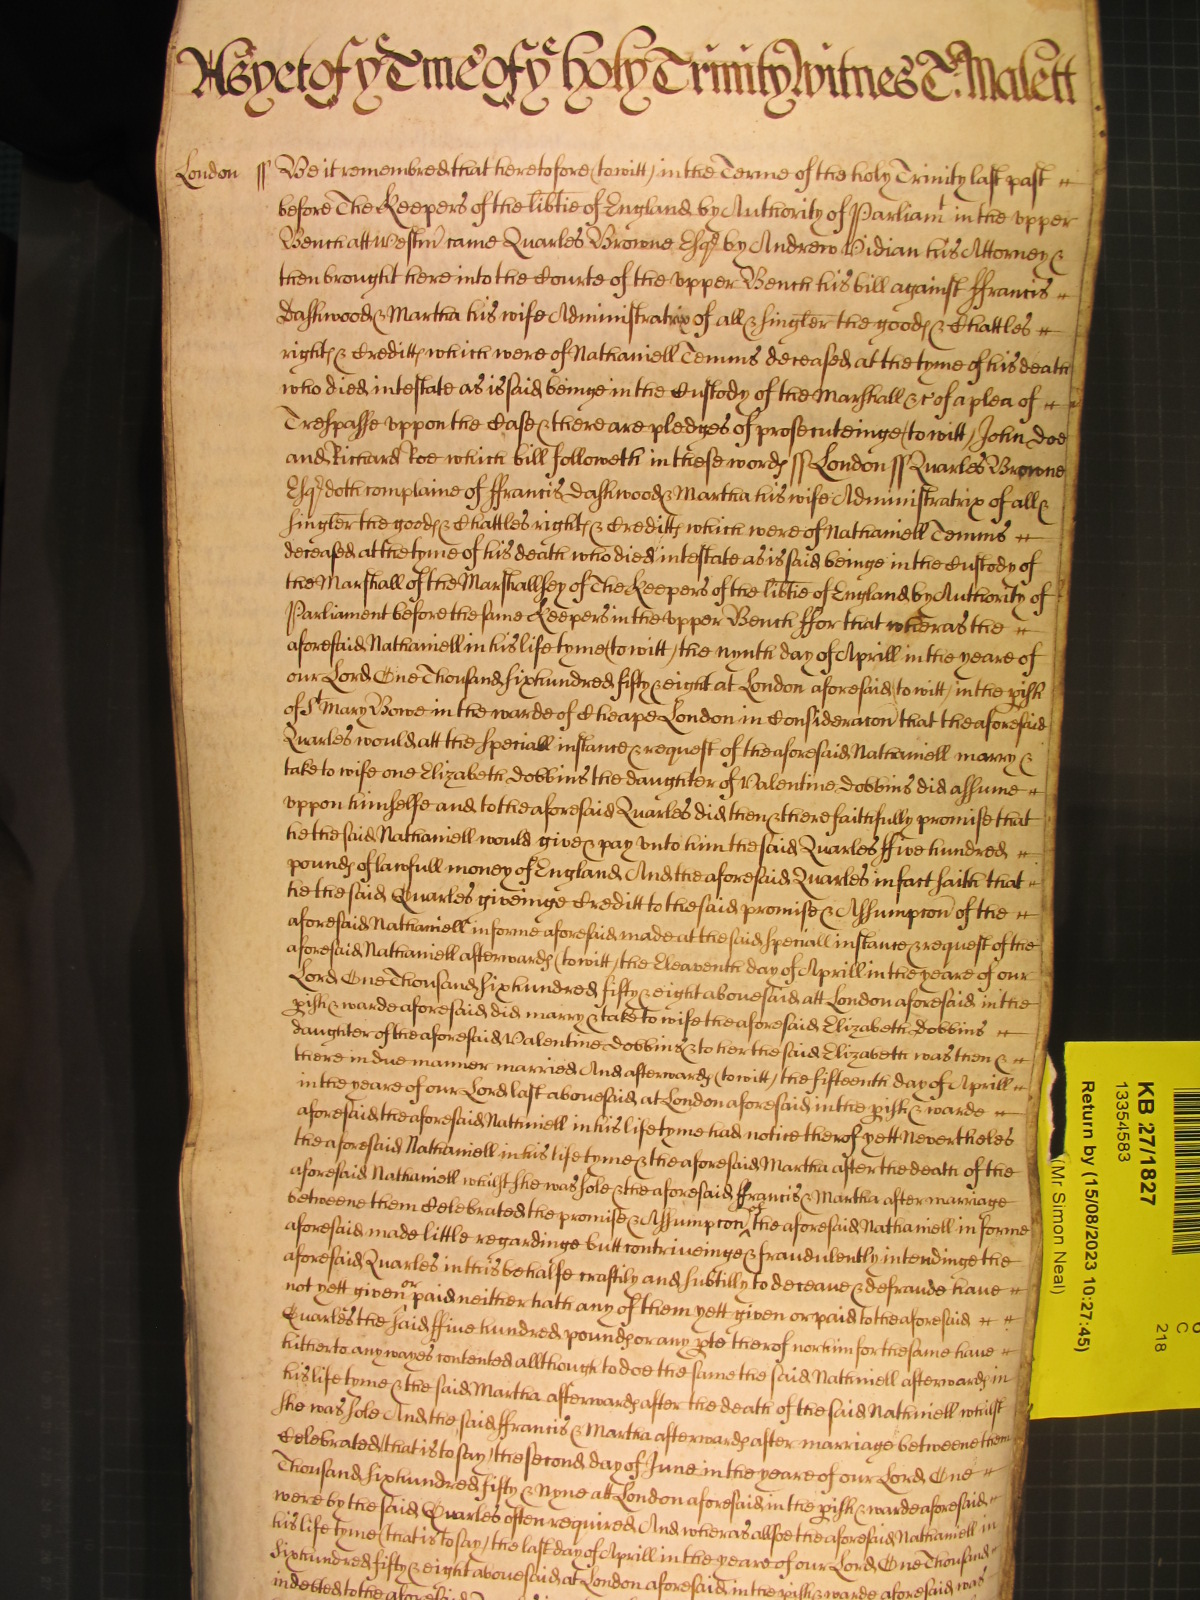 As yet of ye Tme of ye holy Trinity Witnes T: Malett
London ss Be it remembred that heretofore (to witt) in the Terme of the holy Trinity last past
before The Keepers of the libtie of England by Authority of Parliamt in the vpper
Bench att Westm' came Quarles Browne Esqr by Andrew Vidian his Attorney &
then brought here into the Courte of the vpper Bench his bill against ffrancis
Dashwood & Martha his wife Administratrix of all & singler the goods & Chattles
rights & Creditts which were of Nathaniell Temms deceased at the tyme of his death
who died intestate as is said beinge in the Custody of the Marshall &c of a plea of
Trespasse vppon the Case & there are pledges of prosecuteinge (to witt) John Doe
and Richard Roe which bill followeth in these words ss London ss Quarles Browne
Esqr doth complaine of ffrancis Dashwood & Martha his wife Administratrix of all &
singler the goods & Chattles rights & Creditts which were of Nathaniell Temms
deceased at the tyme of his death who died intestate as is said beinge in the Custody of
the Marshall of the Marshallsey of The Keepers of the libtie of England by Authority of
Parliament before the same Keepers in the vpper Bench ffor that wheras the
aforesaid Nathaniell in his life tyme (to witt) the nynth day of Aprill in the yeare of
our Lord One Thousand sixhundred fifty & eight at London aforesaid (to witt) in the pish
of St Mary Bowe in the warde of Cheape London in Consideracon that the aforesaid
Quarles would att the speciall instance & request of the aforesaid Nathaniell marry &
take to wife one Elizabeth Dobbins the daughter of Valentine Dobbins did assume
vppon himselfe and to the aforesaid Quarles did then & there faithfully promise that
he the said Nathaniell would give & pay vnto him the said Quarles ffive hundred
pounds of lawfull money of England And the aforesaid Quarles in fact saith that
he the said Quarles giveinge Creditt to the said promise & Assumpcon of the
aforesaid Nathaniell in forme aforesaid made at the said speciall instance & request of the
aforesaid Nathaniell afterwards (to witt) the Eleaventh day of Aprill in the yeare of our
Lord One Thousand sixhundred fifty & eight abovesaid att London aforesaid in the
pish & warde aforesaid did marry & take to wife the aforesaid Elizabeth Dobbins
daughter of the aforesaid Valentine Dobbins & to her the said Elizabeth was then &
there in due manner married And afterwards (to witt) the fifteenth day of Aprill
in the yeare of our Lord last abovesaid at London aforesaid in the pish & warde
aforesaid the aforesaid Nathniell in his life tyme had notice therof yett Nevertheles
the aforesaid Nathaniell in his life tyme & the aforesaid Martha after the death of the
aforesaid Nathaniell whilst she was sole & the aforesaid ffrancis & Martha after marriage
betweene them Celebrated the promise & Assumpcon of the aforesaid Nathaniell in forme
aforesaid made little regardinge butt contriveinge & fraudulently intendinge the
aforesaid Quarles in this behalfe craftily and subtilly to deceave & defraude have
not yett given or paid neither hath any of them yett given or paid to the aforesaid
Quarles the said ffive hundred pounds or any pte therof nor him for the same have
hitherto any wayes contented allthough to doe the same the said Nathniell afterwards in
his life tyme & the said Martha afterwards after the death of the said Nathniell whilst
she was sole And the said ffrancis & Martha afterwards after marriage betweene them
Celebrated (that is to say) the second day of June in the yeare of our Lord One
Thousand sixhundred fifty & Nyne att London aforesaid in the pish & warde aforesaid
were by the said Quarles often required And wheras allsoe the aforesaid Nathaniell in
his life tyme (that is to say) the last day of Aprill in the yeare of our Lord One Thousand
sixhundred fifty & eight abovesaid at London aforesaid in the pish & warde aforesaid was
indebted to the aforesaid
KB 27/1827
13354583
Return by (15/08/2023 10:27:45)
(Mr Simon Neal)
C
218